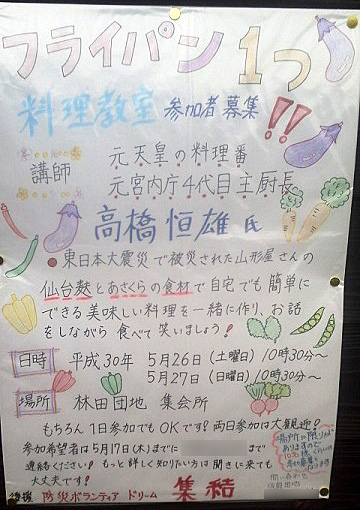 フライパン1つ
料理教室 参加者募集!!
講師
元天皇の料理番
元宮内庁4代目主厨長
高橋恒雄氏
●東日本大震災で被災された山形屋さんの
仙台麩とあさくらの食材で自宅でも簡単に
できる美味しい料理を一緒に作り、お話
をしながら食べて笑いましょう!
日時 平成30年 5月26日(土曜日)10時30分~
5月27日(日曜日)10時30分~
場所 林田団地 集会所
もちろん1日参加でもOKです!両日参加は大歓迎!
参加希望者は5月17日(木)までに まで
連絡ください!もっと詳しく知りたい方は聞きに来ても
大丈夫です!
場所に限りが
ありますので
後援 防災ボランティア ドリーム 集結